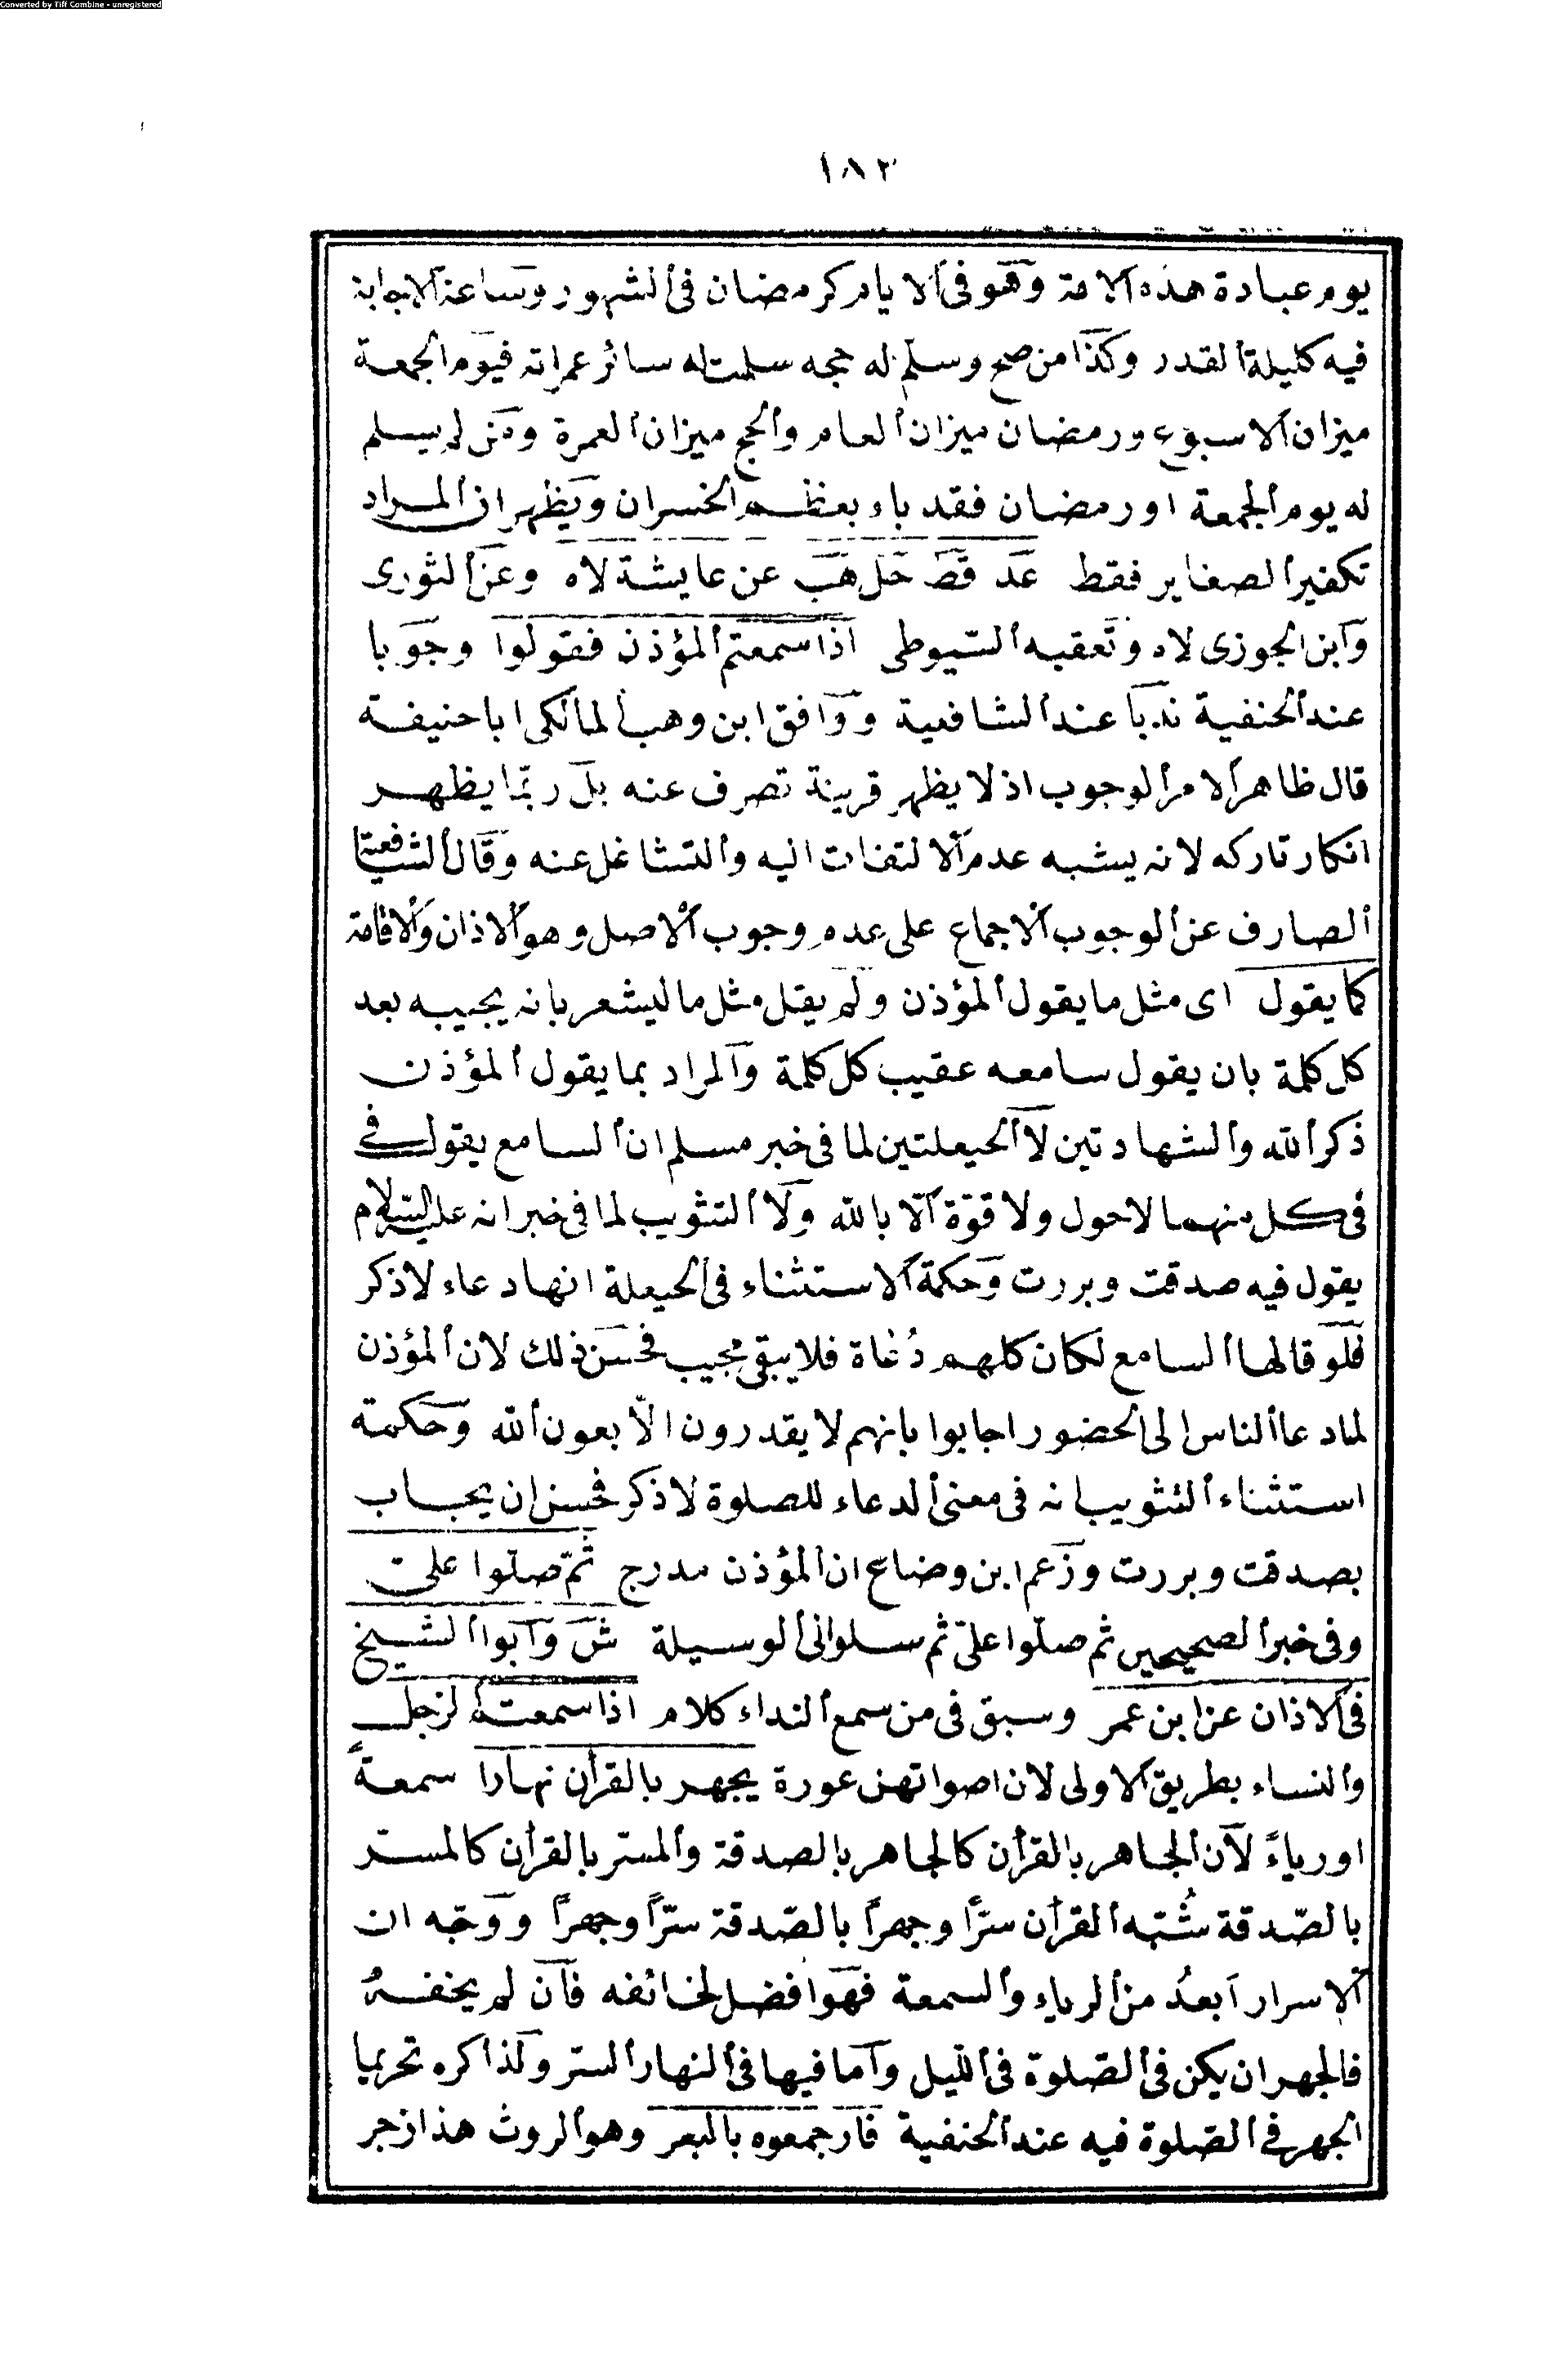 Converted by Tiff Combine - unregistered
١٨٢
يوم عبادة هذه الامة وهو فى الايام كرمضان فى الشهور وساعة الاجابة
فيه كليلة القدر وكذا من صح وسلم له حجه سلمت له سائر عمراته فيوم الجمعة
ميزان الاسبوع ورمضان ميزان العام والحج ميزان العمرة ومن لم يسلم
له يوم الجمعة او رمضان فقد باء بعظم الخسران ويظهر ان المراد
تكفير الصغاير فقط عد قط حل هب عن عايشة لاه وعن الثورى
وابن الجوزى لاه وتعقبه السيوطى اذا سمعتم المؤذن فقولوا وجوبا
عند الحنفية ندبا عند الشافعية ووافق ابن وهب المالكى ابا حنيفة
قال ظاهر الامر الوجوب اذ لا يظهر قرينة تصرف عنه بل ربّما يظهر
انكار تاركه لانه يشبه عدم الالتفات اليه والتشاغل عنه وقال الشافعية
الصارف عن الوجوب الاجماع على عدم وجوب الاصل وهو الاذان والاقامة
كما يقول اى مثل ما يقول المؤذن ولم يقل مثل ما ليشعر بانه يجيبه بعد
كل كلمة بان يقول سامعه عقيب كل كلمة والمراد بما يقول المؤذن
ذكر الله والشهادتين لا الحيعلتين لما فى خبر مسلم ان السامع يقول فى
فى كل منهما لاحول ولا قوّة الّا بالله ولا التثويب لما فى خبر انه عليه السلام
يقول فيه صدقت وبررت وحكمة الاستثناء فى الحيعلة انها دعاء لا ذكر
فلو قالها السامع لكان كلهم دُعاة فلا يبقى مجيب فحسن ذلك لان المؤذن
لما دعا الناس الى الحضور اجابوا بانهم لا يقدرون الّا بعون الله وحكمة
استثناء التثويب انه فى معنى الدعاء للصلوة لا ذكر فحسن ان يجاب
بصدقت وبررت وزعم ابن وضاع ان المؤذن مدرج ثمّ صلّوا علىّ
وفى خبر الصحيحين ثم صلّوا علىّ ثم سلوا لى الوسيلة ش وابوا الشيخ
فى الاذان عن ابن عمر وسبق فى من سمع النداء كلام اذا سمعت الرجل
والنساء بطريق الاولى لان اصواتهن عورة يجهر بالقرأن نهارا سمعةً
او رياءً لان الجاهر بالقرأن كالجاهر بالصدقة والمسر بالقرأن كالمسر
بالصّدقة شُبّه القرأن سرًّا وجهرًا بالصّدقة سرًّا وجهرًا ووجّه ان
الاسرار ابعدُ من الرياء والسمعة فهو افضل لخائفه فان لم يخفهُ
فالجهر ان يكن فى الصّلوة فى اللّيل واما فيها فى النهار السر ولذا كره تحريما
الجهر فى الصّلوة فيه عند الحنفية فارجمعوه بالبعر وهو الروث هذا زجر